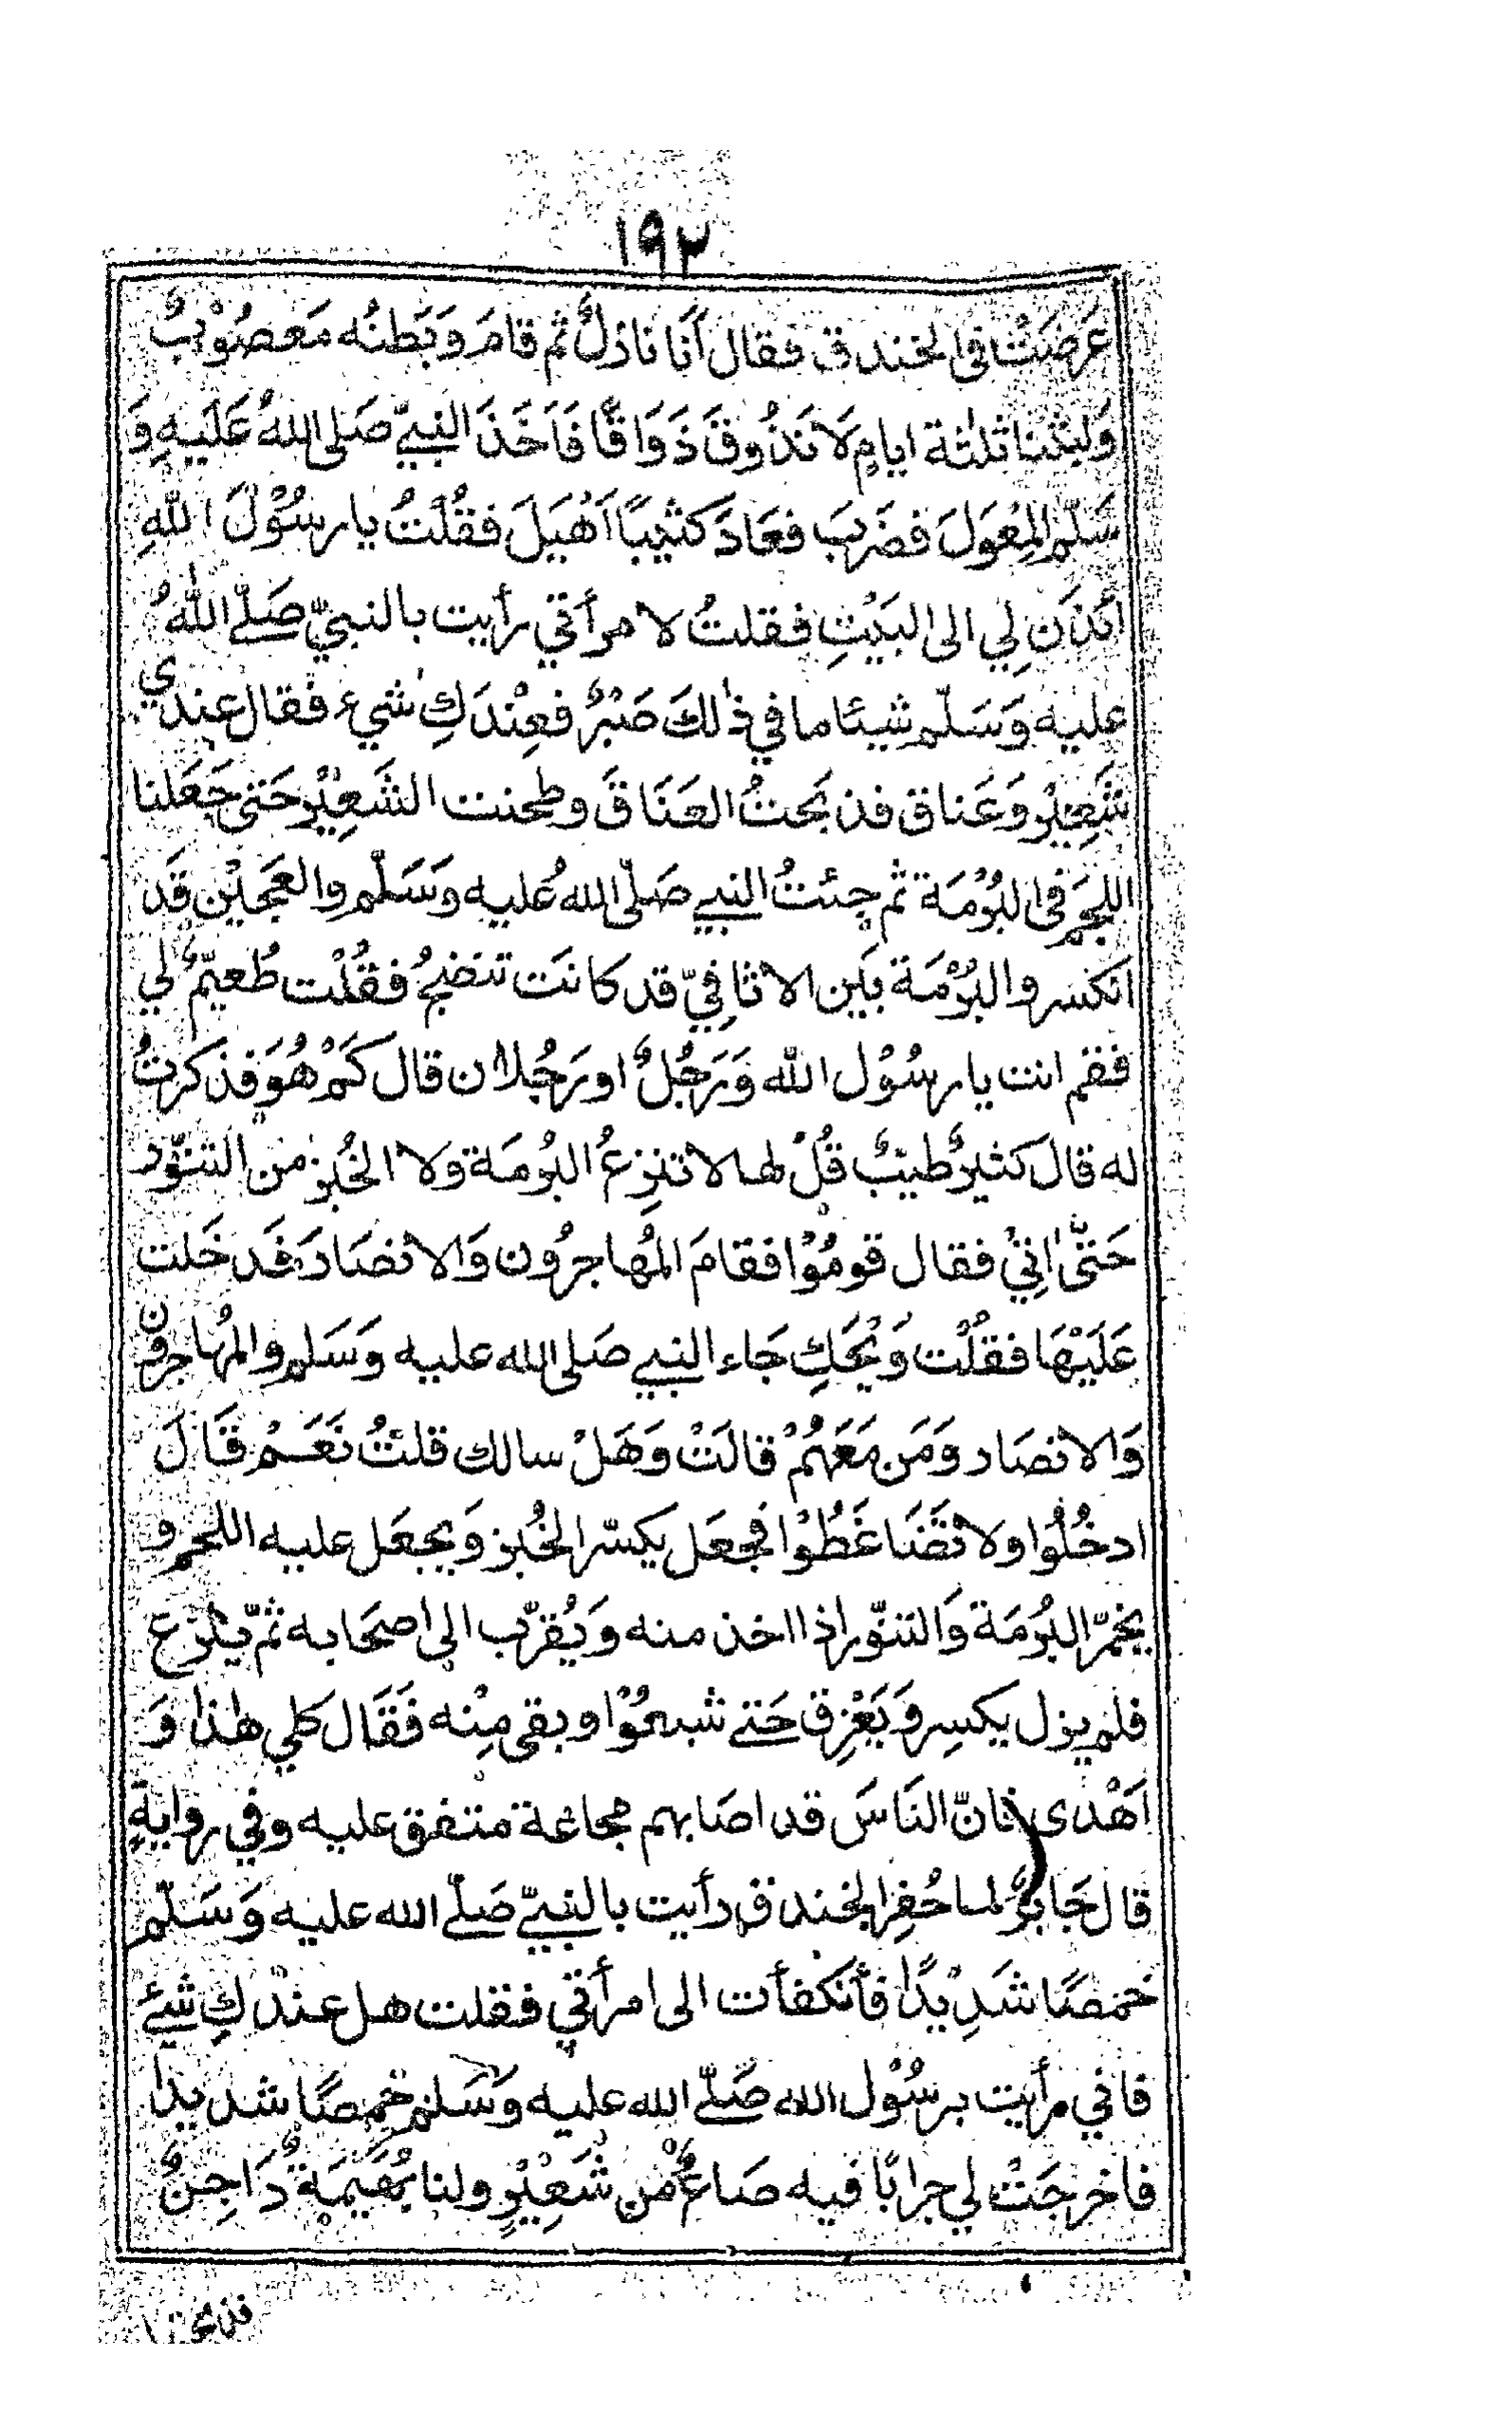 ١٩٢
عَرضَتْ في الخندق فقال أنَا نازلٌ ثم قامَ وَبَطنُه مَعصُوْبٌ
وَلبثنا ثلثة ايامٍ لَا نَذُوقَ ذَوَاقًا فَاَخَذَ النبيّ صَلى اللهُ عَلَيهِ وَ
سَلّم المِعْوَلَ فضَرَبَ فعَادَ كثيبًا اَهْيَلَ فقُلْتُ يا رسُوْلَ اللهِ
أئذَن لِي الى البَيْتِ فقلتُ لامرأتي رأيت بالنبيّ صَلّے اللهُ
عليه وَسَلّم شيئا ما في ذٰلكَ صَبْرٌ فعِنْدَكِ شيء فقال عندي
شَعِيْر وَعَناق فذبَحتُ العَنَاقَ وطحنت الشَعِيْر حَتى جَعَلنا
اللحَم في البُرْمَة ثم جِئتُ النبي صَلّى اللهُ عليه وَسَلّم والعَجيْن قَد
انكسر والبُرْمَة بَين الاثافِيّ قد كانَت تنضجُ فقُلْت طُعيّمٌ لي
فقم انت يا رسُوْل الله وَرَجُلٌ او رَجُلان قال كَمْ هُوَ فذكرتُ
له قال كثيرٌ طيبٌ قُلْ لها لا تنزِعُ البُرمَة ولا الخُبز من التنّور
حَتّٰى اتِيْ فقال قومُوْا فقامَ المُهاجرُون وَالانصَارَ فَدخَلت
عَلَيْهَا فقُلْت وَيْحَكِ جَاء النبي صَلى الله عليه وَسَلم والمُهاجرون
وَالانصَار وَمَن مَعَهُمْ قالَتْ وَهَلْ سالك قلتُ نَعَمْ قَالَ
ادخُلُوا ولا تَضَاغَطُوْا فجعَل يكسّر الخُبز وَيجعَل عليه اللحم و
يخمّر البُرْمَة وَالتنّور اذا اخذ منه وَيُقرّب الى اصحَابه ثمّ ينزع
فلم يزل يكسِر وَيَغْرِق حَتے شبعُوْا وبقى مِنْه فَقَال كلي هٰذا وَ
اَهْدى فانّ النَاسَ قد اصَابهم مجاعة متفق عليه وفي روايةٍ
قال جَابرٌ لما حُفِر الخندق رأيت بالنبيّ صَلّے الله عليه وَسَلّم
خمصًا شَدِيْدًا فأنكفأت الى امرأتي فقلت هل عنْدكِ شيئ
فاني رأيت برسُوْل الله صَلّے الله عليه وَسَلم خمصًا شديدا
فاخرجَتْ لي جرابًا فيه صَاعٌ مِّن شَعِيْرٍ ولنا بُهَيْمَةٌ دَاجِنٌ